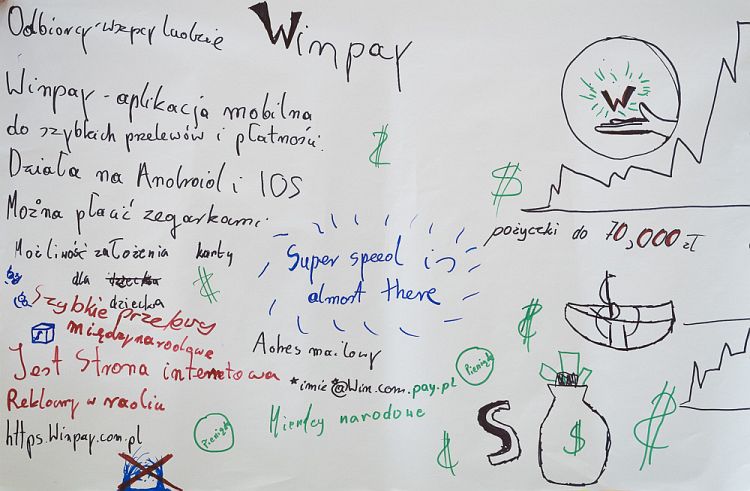 Odbiorcy-wszyscy ludzie
Winpay
Winpay - aplikacja mobilna
do szybkich przelewów i płatności.
Działa na Android i IOS
Można płacić zegarkami.
Możliwość założenia karty
dla dziecka
dziecka
Szybkie przelewy
międzynarodowe
Jest Strona internetowa
Reklamy w radiu
https.Winpay.com.pl
Pieniądz
Super speed is
almost there
Adres mailowy
*imie*@Win.com.pay.pl
Miendzy narodowe
Pieniądz
W
pożyczki do 70,000 zł
S
$